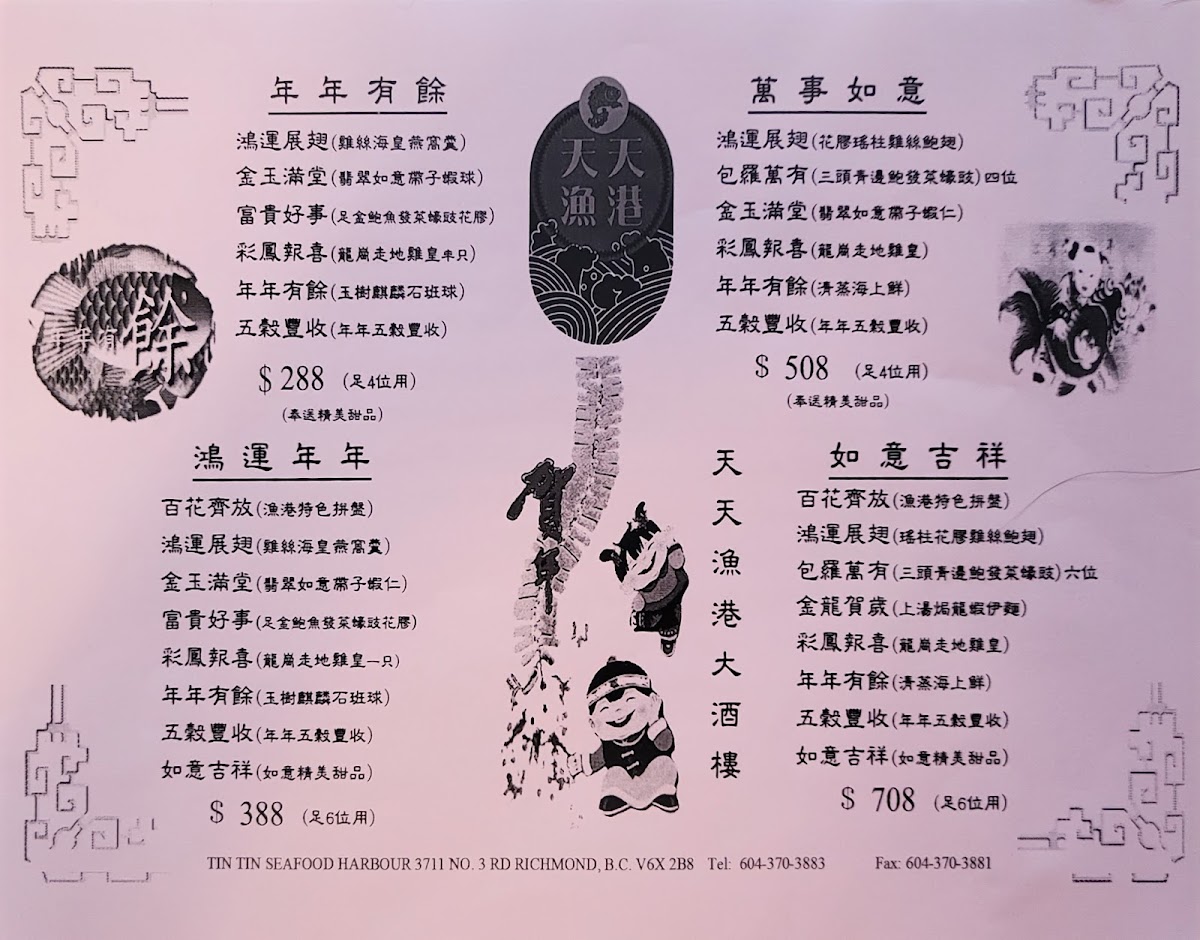 年年有餘
鴻運展翅(雞絲海皇燕窩羹)
金玉滿堂(翡翠如意帶子蝦球)
富貴好事(足金鮑魚發菜蠔豉花膠)
彩鳳報喜(龍崗走地雞皇半只)
年年有餘(玉樹麒麟石班球)
五穀豐收(年年五穀豐收)
$ 288 (足4位用)
(奉送精美甜品)
年年有餘
天天
漁港
萬事如意
鴻運展翅(花膠瑤柱雞絲鮑翅)
包羅萬有(三頭青邊鮑發菜蠔豉)四位
金玉滿堂(翡翠如意帶子蝦仁)
彩鳳報喜(龍崗走地雞皇)
年年有餘(清蒸海上鮮)
五穀豐收(年年五穀豐收)
$ 508 (足4位用)
(奉送精美甜品)
鴻運年年
百花齊放(漁港特色拼盤)
鴻運展翅(雞絲海皇燕窩羹)
金玉滿堂(翡翠如意帶子蝦仁)
富貴好事(足金鮑魚發菜蠔豉花膠)
彩鳳報喜(龍崗走地雞皇一只)
年年有餘(玉樹麒麟石班球)
五穀豐收(年年五穀豐收)
如意吉祥(如意精美甜品)
$ 388 (足6位用)
賀年
天天漁港大酒樓
如意吉祥
百花齊放(漁港特色拼盤)
鴻運展翅(瑤柱花膠雞絲鮑翅)
包羅萬有(三頭青邊鮑發菜蠔豉)六位
金龍賀歲(上湯焗龍蝦伊麵)
彩鳳報喜(龍崗走地雞皇)
年年有餘(清蒸海上鮮)
五穀豐收(年年五穀豐收)
如意吉祥(如意精美甜品)
$ 708 (足6位用)
TIN TIN SEAFOOD HARBOUR 3711 NO. 3 RD RICHMOND, B.C. V6X 2B8 Tel: 604-370-3883 Fax: 604-370-3881